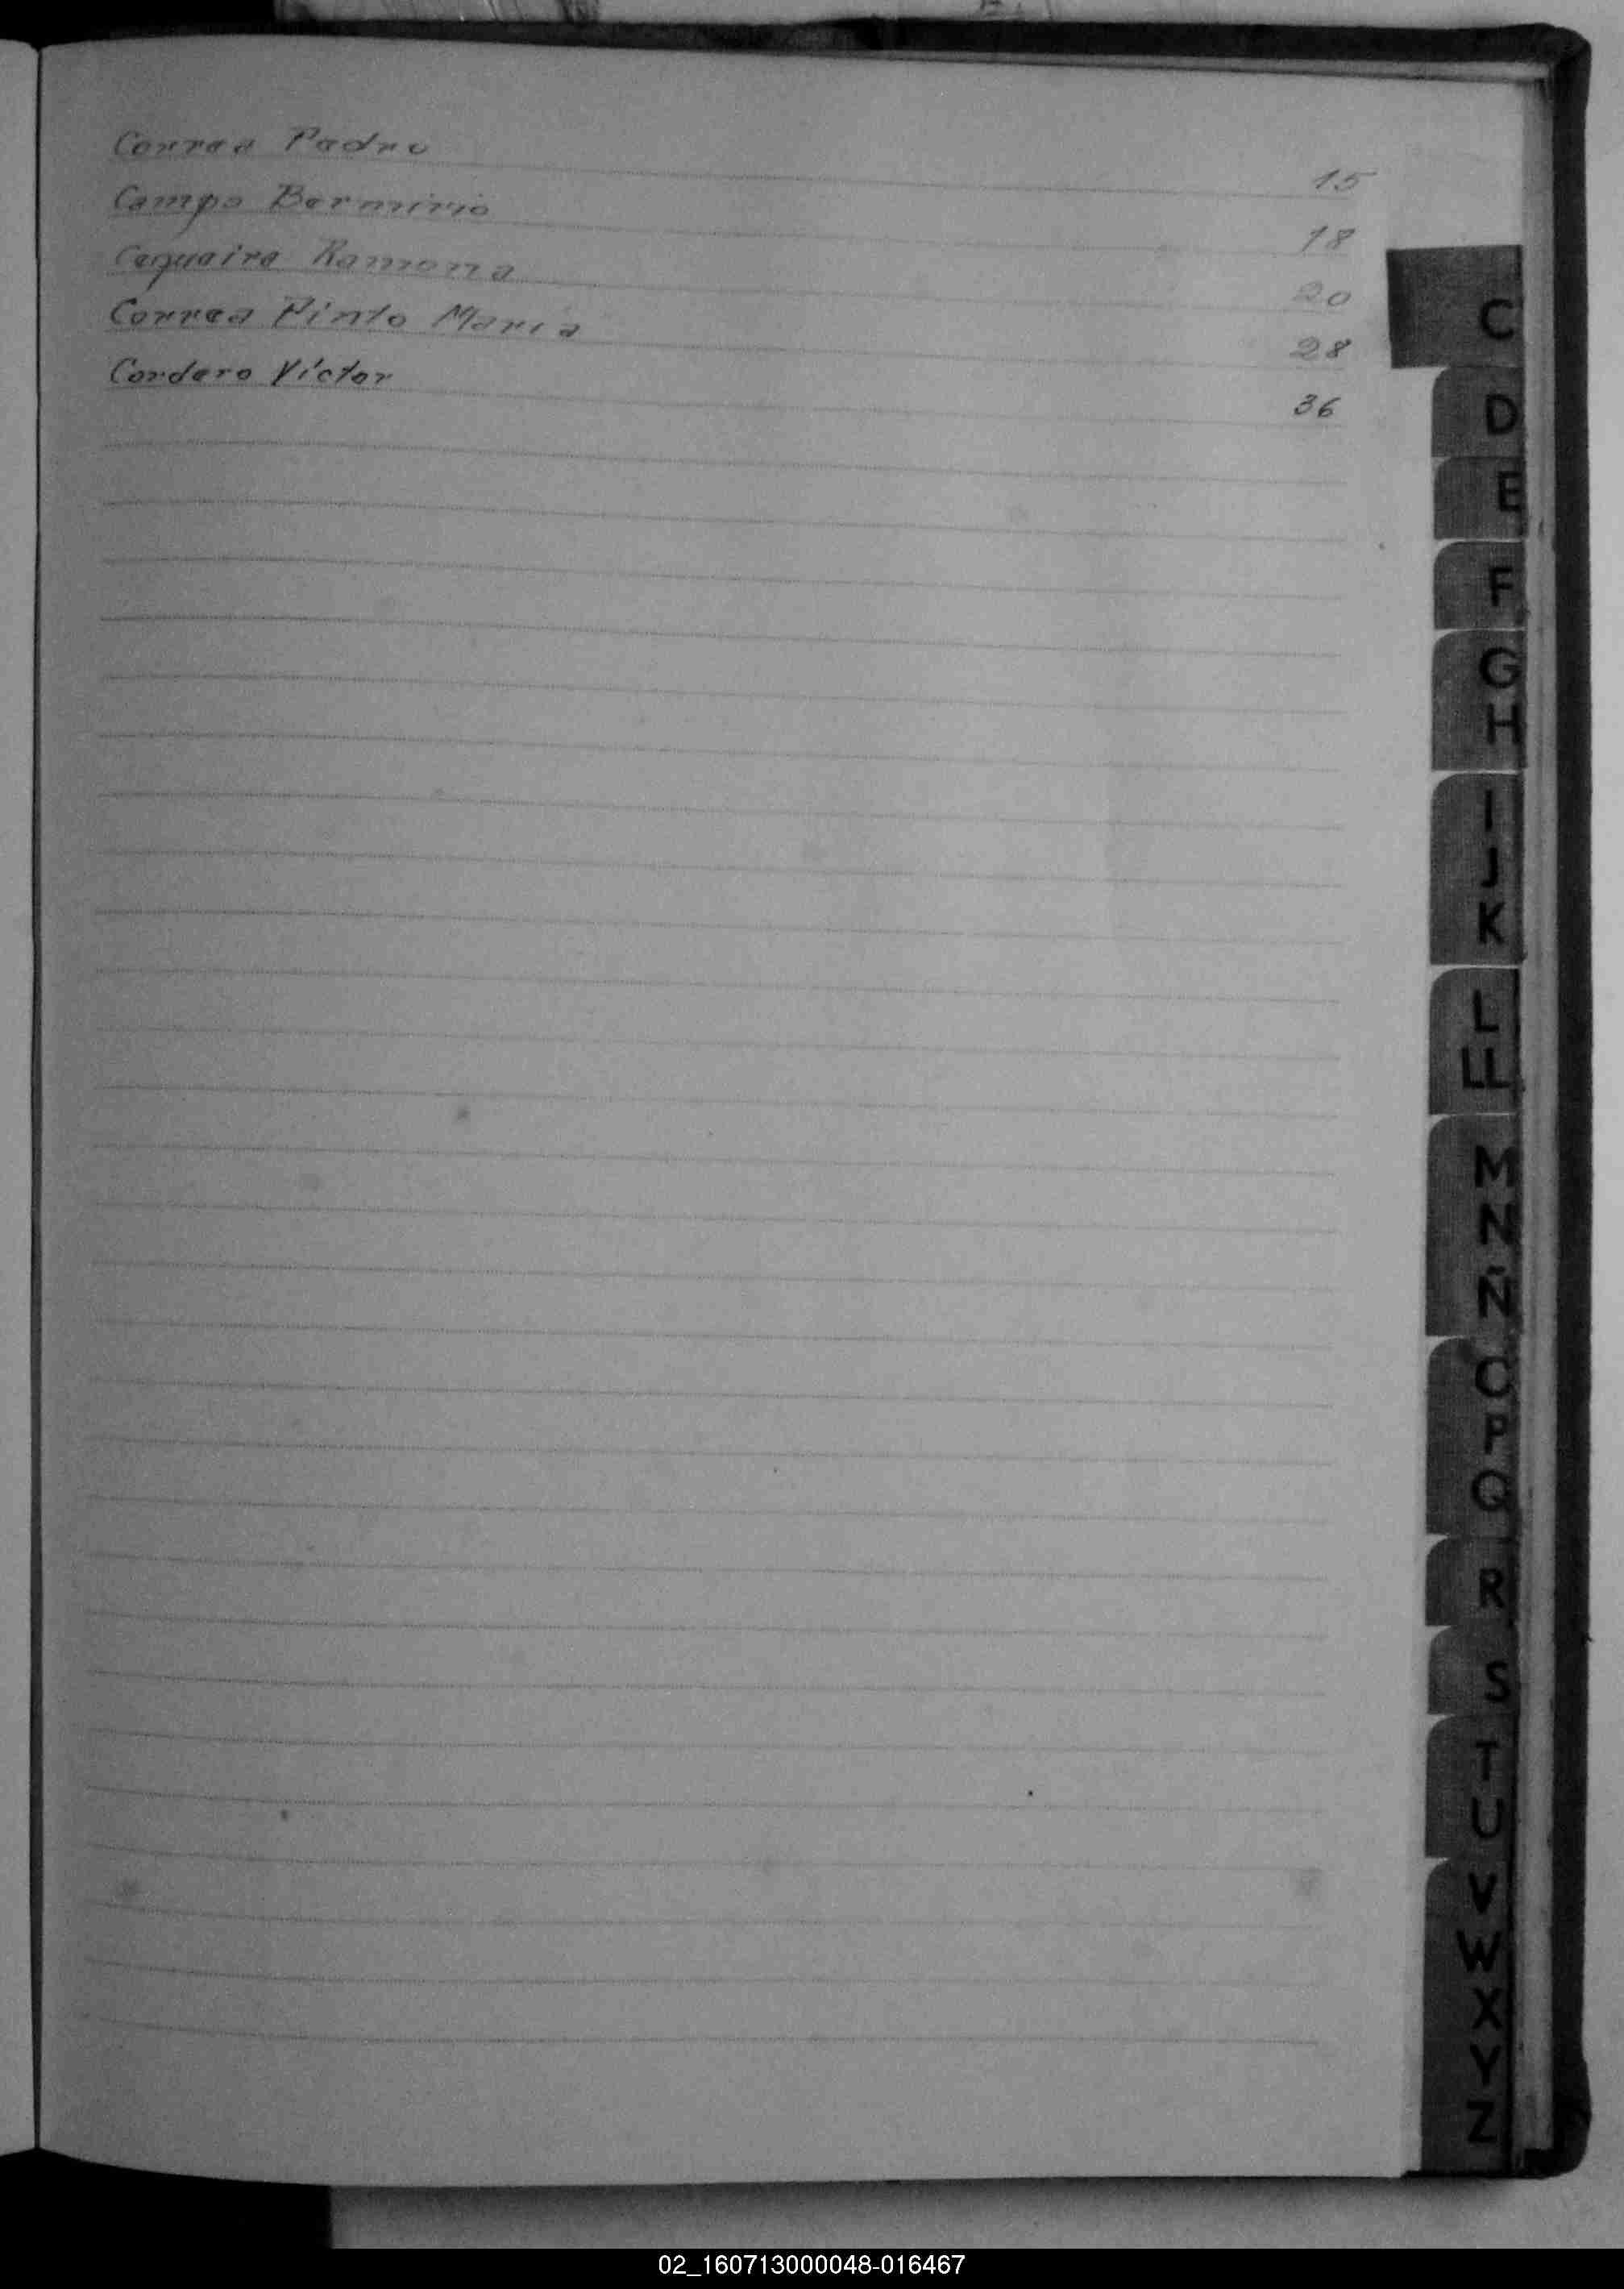 Correa Pedro 15
Campo Bermirio 18
Cequeira Ramona 20
Correa Pinto Maria 28
Cordero Victor 36
C
D
E
F
G
H
I
J
K
L
LL
M
N
Ñ
O
P
Q
R
S
T
U
V
W
X
Y
Z
02_160713000048-016467